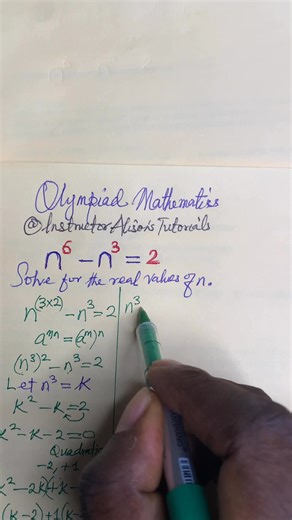 Olympiad Mathematics
@Instructor Alison's Tutorials
n⁶ - n³ = 2
Solve for the real values of n.
n⁽³ˣ²⁾ - n³ = 2
aᵐⁿ = (aᵐ)ⁿ
(n³)² - n³ = 2
Let n³ = K
K² - K = 2
K² - K - 2 = 0
Quadratic
-2, +1
K² - 2K + K -
(K - 2) + 1(K -
n³